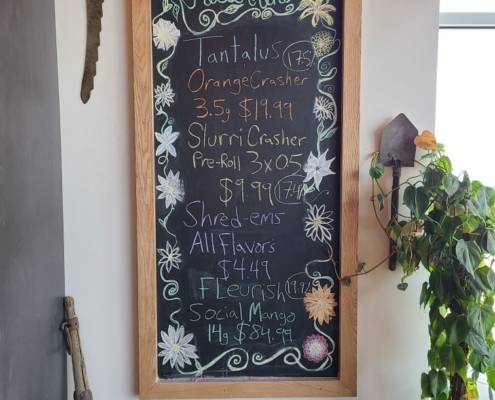 Tantalus 17.5
Orange Crasher
3.5g $19.99
Slurri Crasher
Pre-Roll 3x05
$9.99
Shred-ems
All Flavors
$4.49
FLeurish
Social Mango
14g $84.99